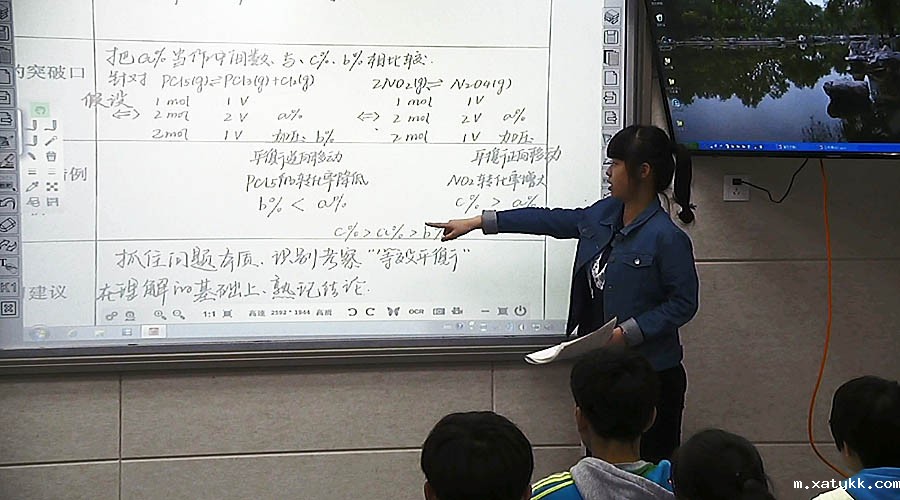 把a%当作中间数、与、c%、b%相比较.
的突破口
针对 PCl5(g)⇌PCl3(g)+Cl2(g) 2NO2(g)⇌N2O4(g)
假设 1 mol 1V 1 mol 1V
<=> 2 mol 2V a% <=> 2 mol 2V a%
2 mol 1V 加压: b% 2 mol 1V 加压:
平衡逆向移动 平衡正向移动
例
PCl5的转化率降低 NO2转化率增大
b% < a% c% > a%
c%>a%>b%
抓住问题本质、识别考察"等效平衡"
建议
在理解的基础上、熟记结论.
1:1 高速 2592 * 1944 高质 OCR
m.xatykk.com